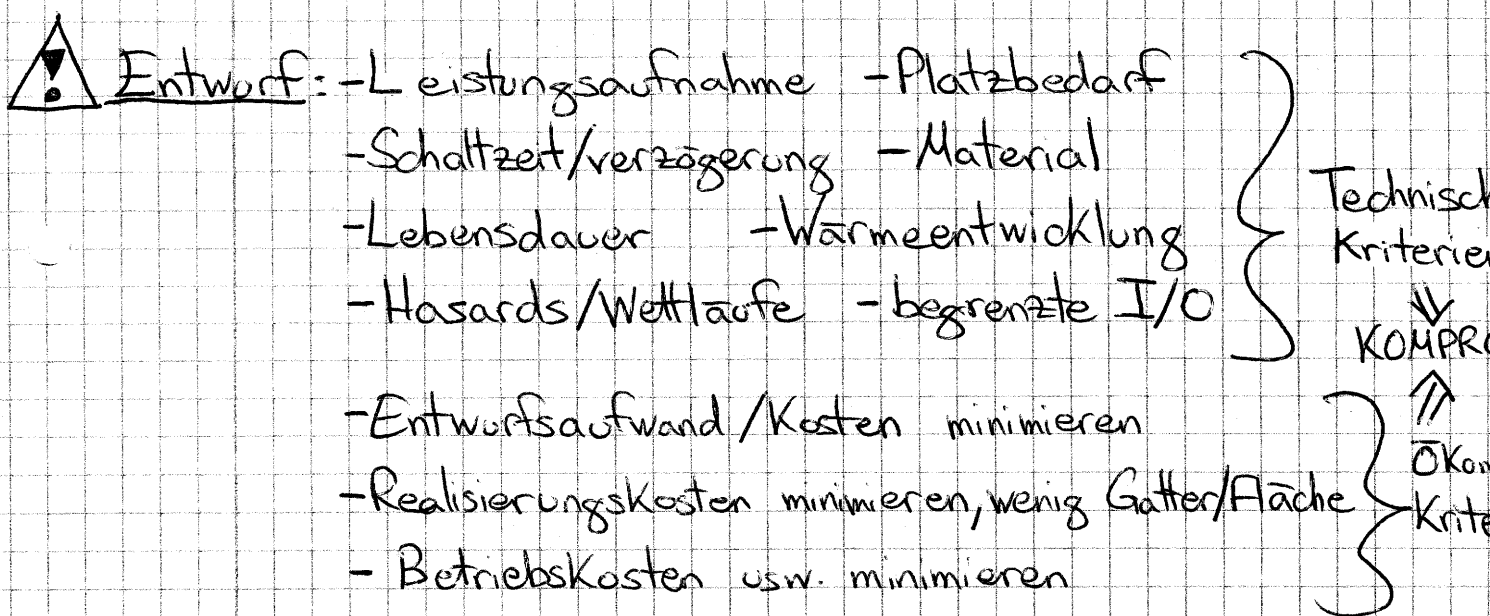 Entwurf: -Leistungsaufnahme -Platzbedarf
-Schaltzeit/verzögerung -Material
-Lebensdauer -Wärmeentwicklung
-Hasards/Wettläufe -begrenzte I/O
Technisch
Kriterien
KOMPRO
-Entwurfsaufwand/Kosten minimieren
-Realisierungskosten minimieren, wenig Gatter/Fläche
- Betriebskosten usw. minimieren
Ökon
Krite